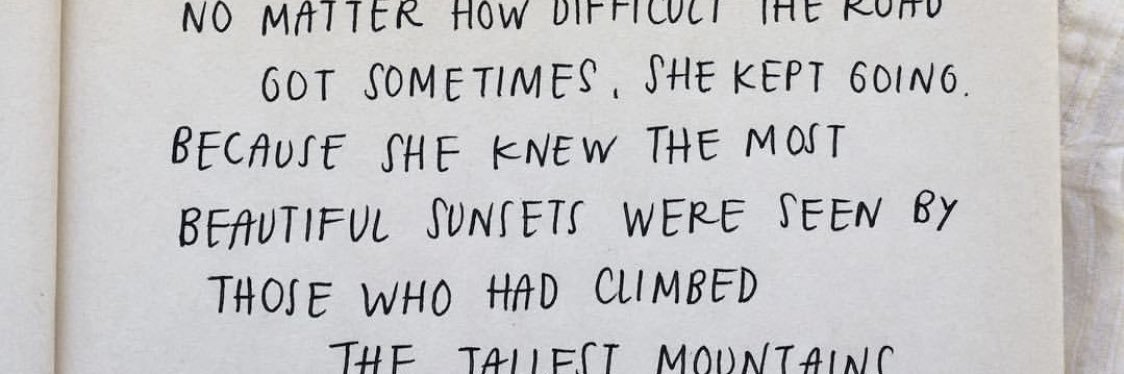 NO MATTER HOW DIFFICULT THE ROAD
GOT SOMETIMES, SHE KEPT GOING.
BECAUSE SHE KNEW THE MOST
BEAUTIFUL SUNSETS WERE SEEN BY
THOSE WHO HAD CLIMBED
THE TALLEST MOUNTAINS